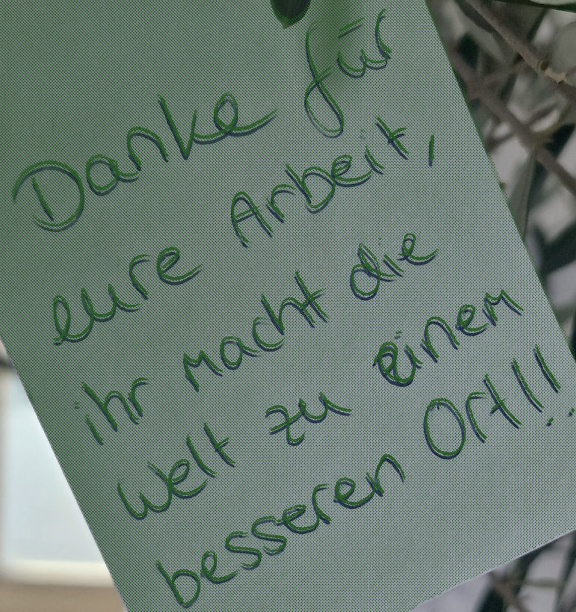 Danke für
eure Arbeit,
ihr macht die
Welt zu einem
besseren Ort!!